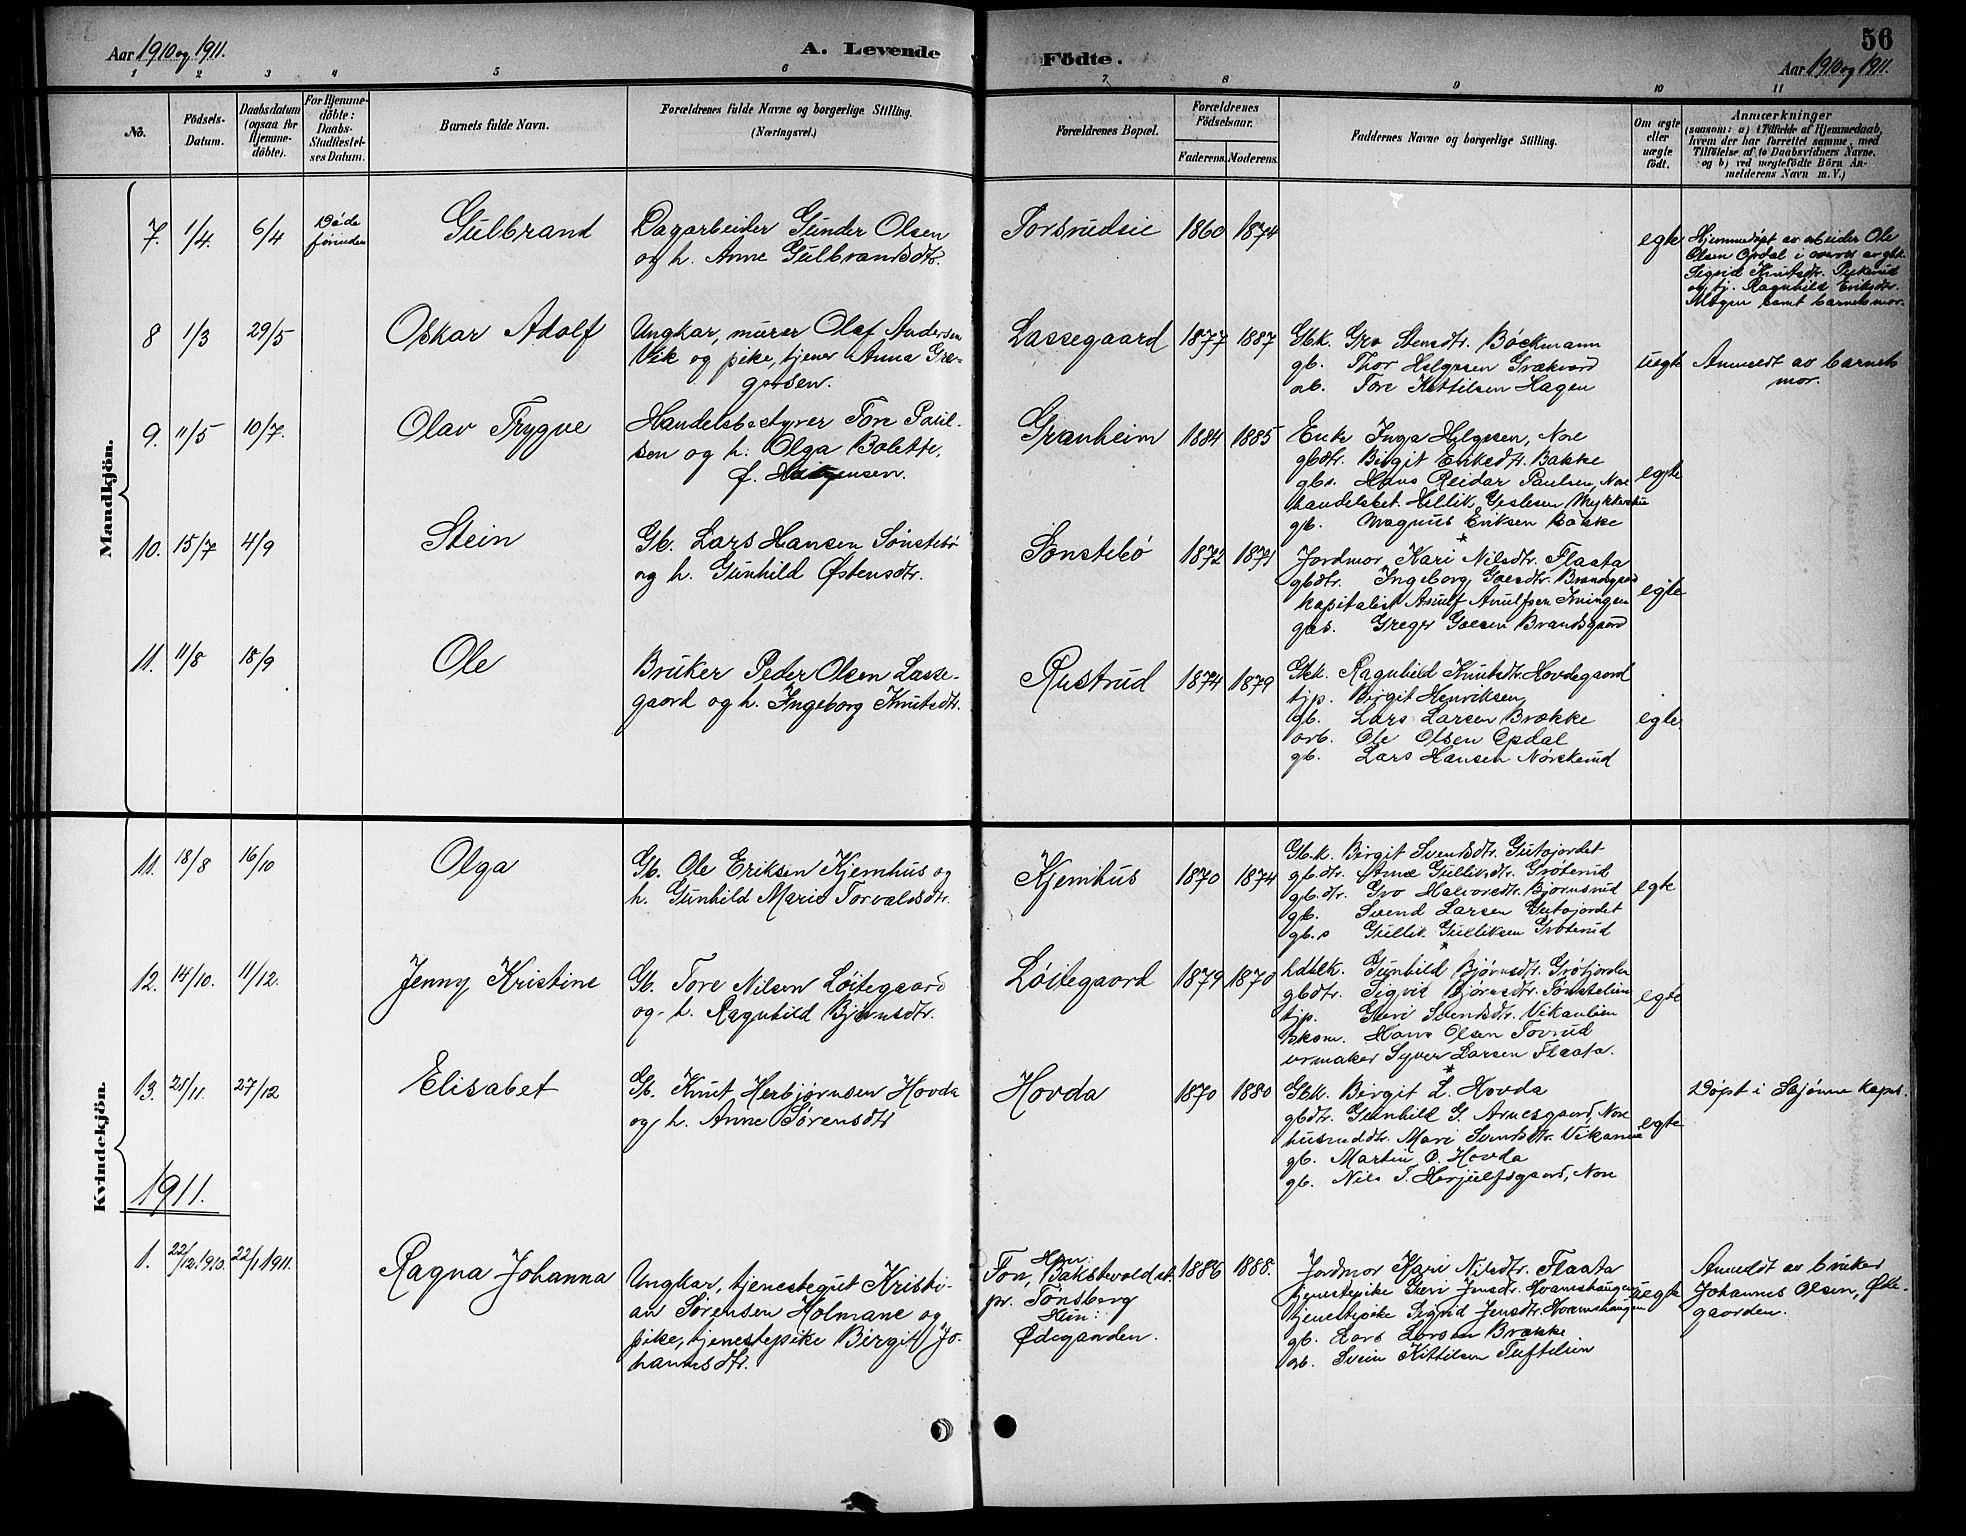 Aar 1910 og 1911.
A. Levende
Födte.
56
Aar 1910 og 1911.
1 2 3 4 5 6 7 8 9 10 11
No.
Födsels-
Datum.
Daabsdatum
(ogsaa for
Hjemme-
döbte).
For Hjemme-
döbte:
Daabs-
Stadfæstel-
ses Datum.
Barnets fulde Navn.
Forældrenes fulde Navne og borgerlige Stilling.
(Næringsvei.)
Forældrenes Bopæl.
Forældrenes
Födselsaar.
Faderens.
Moderens.
Faddernes Navne og borgerlige Stilling.
Om ægte
eller
uægte
født.
Anmærkninger
(saasom: a) i Tilfælde af Hjemmedaab,
hvem der har forrettet samme, med
Tilföielse af to Daabsvidners Navne,
og b) ved uægtefödte Börn An-
melderens Navn m. V.)
Mandkjön.
7. 1/4. 6/4
Døde
forinden
Gulbrand
Dagarbeider Gunder Olsen
og h. Anne Gulbrandsdtr.
Forsrudsie
1860 1874
egte
Hjemmedøpt av arbeider Ole
Olsen Opdal i overvær av gbk.
Sigrid Knutsdtr.
og tj. Ragnhild Eriksdtr.
Mogen samt barnets mor.
8 1/3 29/5
Oskar Adolf
Ungkar, murer Olaf Andersen
Vik og pike, tjener Anna Gre-
gersen.
Lassegaard
1877 1887
Gbk. Gro Stensdtr. Bøckmann
gb. Thor Helgesen Grækvord
ab. Tore Kittilsen Hagen
uegte
Anmeldt av barnets
mor.
9. 11/5 10/7.
Olav Trygve
Handelsbestyrer Tore Paul-
sen og h. Olga Bolette,
f.
Granheim
1884 1885
Enke Inga Helgesen, Nore
gbdtr. Birgit Eriksdtr. Bakke
gbs. Hans Reidar Paulsen, Nore
handelsbet. Hellik Gislesen
gb. Magnus Eriksen Bakke
egte
10. 15/7 4/9
Stein
Gb. Lars Hansen Sønstebø
og h. Gunhild Østensdtr.
Sønstebø
1872 1871
Jordmor Kari Nilsdtr. Flaata
gbdtr. Ingeborg Goesdtr. Brandsgaard
kapitalist Asulf Asulfsen
gbs. Greger Goesen Brandsgaard
egte
11. 11/8 18/9
Ole
Bruker Peder Olsen Lasse-
gaard og h. Ingeborg Knutsdtr.
Rustrud
1874 1879
Gbk. Ragnhild Knutsdtr. Hovdegaard
tjp. Birgit Henriksen
gb. Lars Larsen Brække
arb. Ole Olsen Opdal
gb. Lars Hansen Nørsterud
egte.
Kvindekjön.
11. 18/8 16/10
Olga
Gb. Ole Eriksen Kjemhus og
h. Gunhild Marie Torvaldsdtr.
Kjemhus
1870 1874
Gb.k. Birgit Svendsdtr. Gutujordet
gb.dtr. Anne Gulliksdtr. Grøterud
gb.dtr. Gro Halvorsdtr. Bjørnsrud
gb. Svend Larsen Gutujordet
gb.s Gullik Gulliksen Grøterud
egte
12. 14/10. 11/12.
Jenny Kristine
Gb. Tore Nilsen Løitegaard
og h. Ragnhild Bjørnsdtr.
Løitegaard
1879 1870
Gunhild Bjørnsdtr. Grøtjorden
gbdtr. Sigrid Bjørnsdtr. Sønstelien
tjp. Guri Svendsdtr. Vikanlien
Hans Olsen Tovrud
urmaker Syver Larsen Flaata.
egte
13. 25/11. 27/12
Elisabet
Gb. Knut Herbjørnsen Hovda
og h. Anne Sørensdtr
Hovda
1870 1880
Gbk. Birgit L. Hovda
gbdtr. Gunhild G. Arnesgaard, Nore
Mari Svendsdtr. Vikanlie
gb. Martin O. Hovda
gb. Nils T. Herjulfsgaard, Nore
egte
Døpt i Skjønne kapel.
1911.
1. 22/12.1910. 22/1 1911.
Ragna Johanna
Ungkar, tjenestegut Kristi-
an Sørensen Holmane og
pike, tjenestepike Birgit Jo-
hannesdtr.
Han:
Ton, Bakstevold st.
pr. Tønsberg
Hun:
Ødegaarden.
1886 1888.
Jordmor Kari Nilsdtr. Flaata
tjenestepike Guri Jensdtr. Hvamshaugen
tjenestepike Sigrid Jensdtr. Hvamshaugen
gb. Lars Larsen Brække
gb. Svein Kittilsen Tuftelien
uegte
Anmeldt av bruker
Johannes Olsen, Øde-
gaarden.